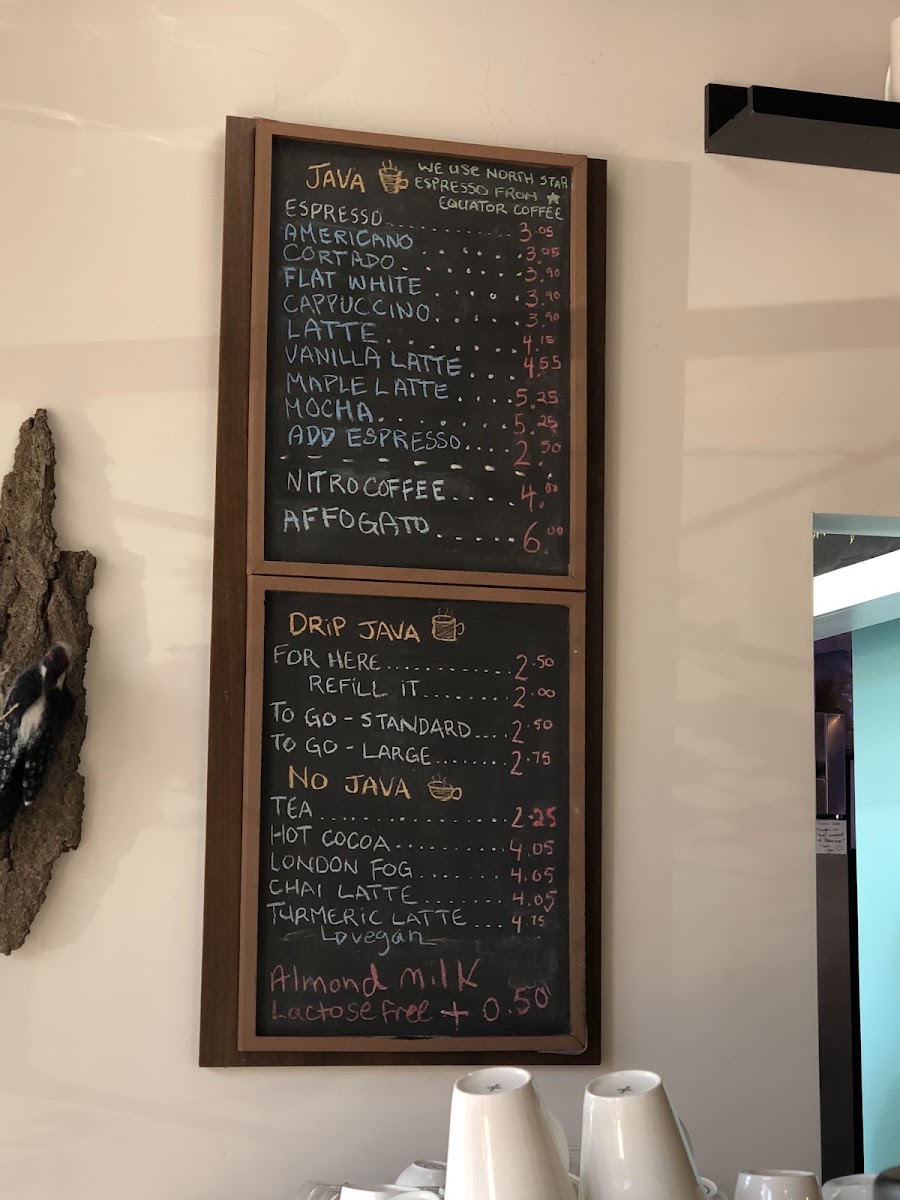 JAVA
WE USE NORTH STAR
ESPRESSO FROM
EQUATOR COFFEE
ESPRESSO............ 3.05
AMERICANO..... 3.05
CORTADO...... 3.90
FLAT WHITE.... 3.90
CAPPUCCINO.... 3.90
LATTE....... 4.15
VANILLA LATTE.... 4.55
MAPLE LATTE.... 5.25
MOCHA....... 5.25
ADD ESPRESSO.... 2.50
NITRO COFFEE.... 4.00
AFFOGATO..... 6.00
DRIP JAVA
FOR HERE............ 2.50
REFILL IT........ 2.00
TO GO - STANDARD.... 2.50
TO GO - LARGE....... 2.75
NO JAVA
TEA................ 2.25
HOT COCOA.......... 4.05
LONDON FOG........ 4.05
CHAI LATTE........ 4.05
TURMERIC LATTE... 4.75
vegan
Almond milk
Lactose free + 0.50